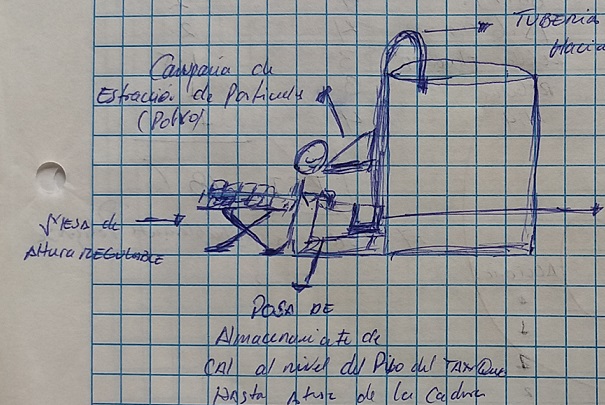 TUBERIA
Hacia
Campana de
Estracción de Particulas
(Polvo)
MESA de
Altura REGULABLE
POSA DE
Almacenamiento de
CAL al nivel del Piso del TANQue
Hasta Altura de la Cadera